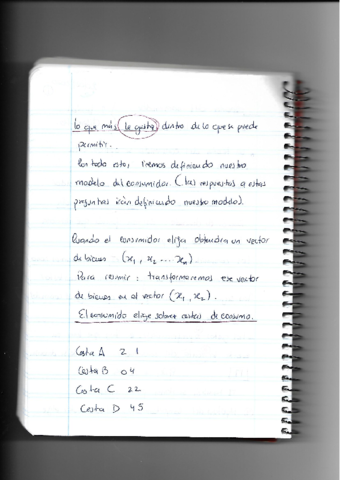 lo que más le gusta, dentro de lo que se puede
permitir.
Por todo esto, iremos definiendo nuestro
modelo del consumidor. (las respuestas a estas
preguntas irán definiendo nuestro modelo).
Cuando el consumidor elija obtendrá un vector
de bienes (x₁, x₂ ... xₙ).
Para resumir: transformaremos ese vector
de bienes en el vector (x₁, x₂).
El consumido elige sobre cestas de consumo.
Cesta A 2 1
Cesta B 0 4
Cesta C 2 2
Cesta D 4 5